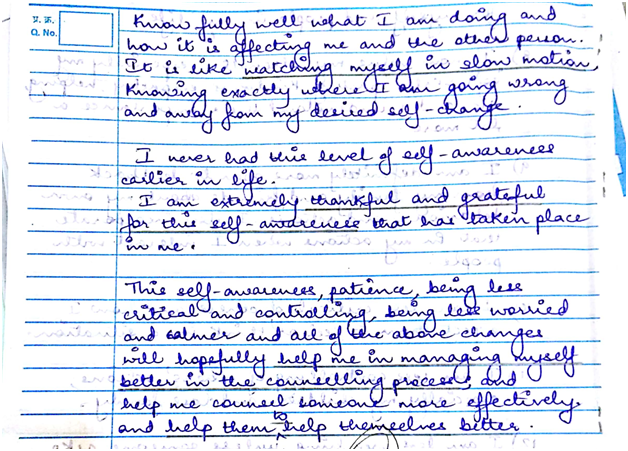 प्र. क्र.
Q. No.
Know fully well what I am doing and
how it is affecting me and the other person.
It is like watching myself in slow motion,
Knowing exactly where I am going wrong
and away from my desired self-change.
I never had this level of self-awareness
earlier in life.
I am extremely thankful and grateful
for this self-awareness that has taken place
in me.
This self-awareness, patience, being less
critical and controlling, being less worried
and calmer and all of the above changes
will hopefully help me in managing myself
better in the counselling process, and
help me counsel someone more effectively.
and help them to help themselves better.